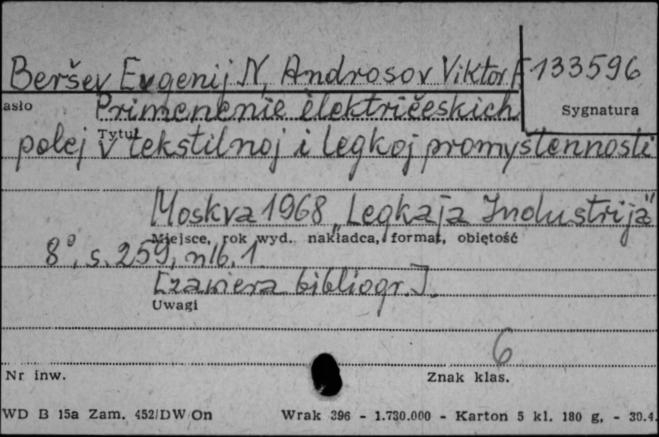 Beršev Evgenij N, Androsov Viktor F
133596
asło
Primenenie ėlektričeskich
Sygnatura
Tytuł
polej v tekstilnoj i legkoj promyšlennosti
Moskva 1968 „Legkaja Industrija”
Miejsce, rok wyd. nakładca, format, objętość
8°, s. 259, nlb. 1
[zawiera bibliogr.].
Uwagi
6
Nr inw.
Znak klas.
WD B 15a Zam. 452/DW On
Wrak 396 - 1.730.000 - Karton 5 kl. 180 g. - 30.4.